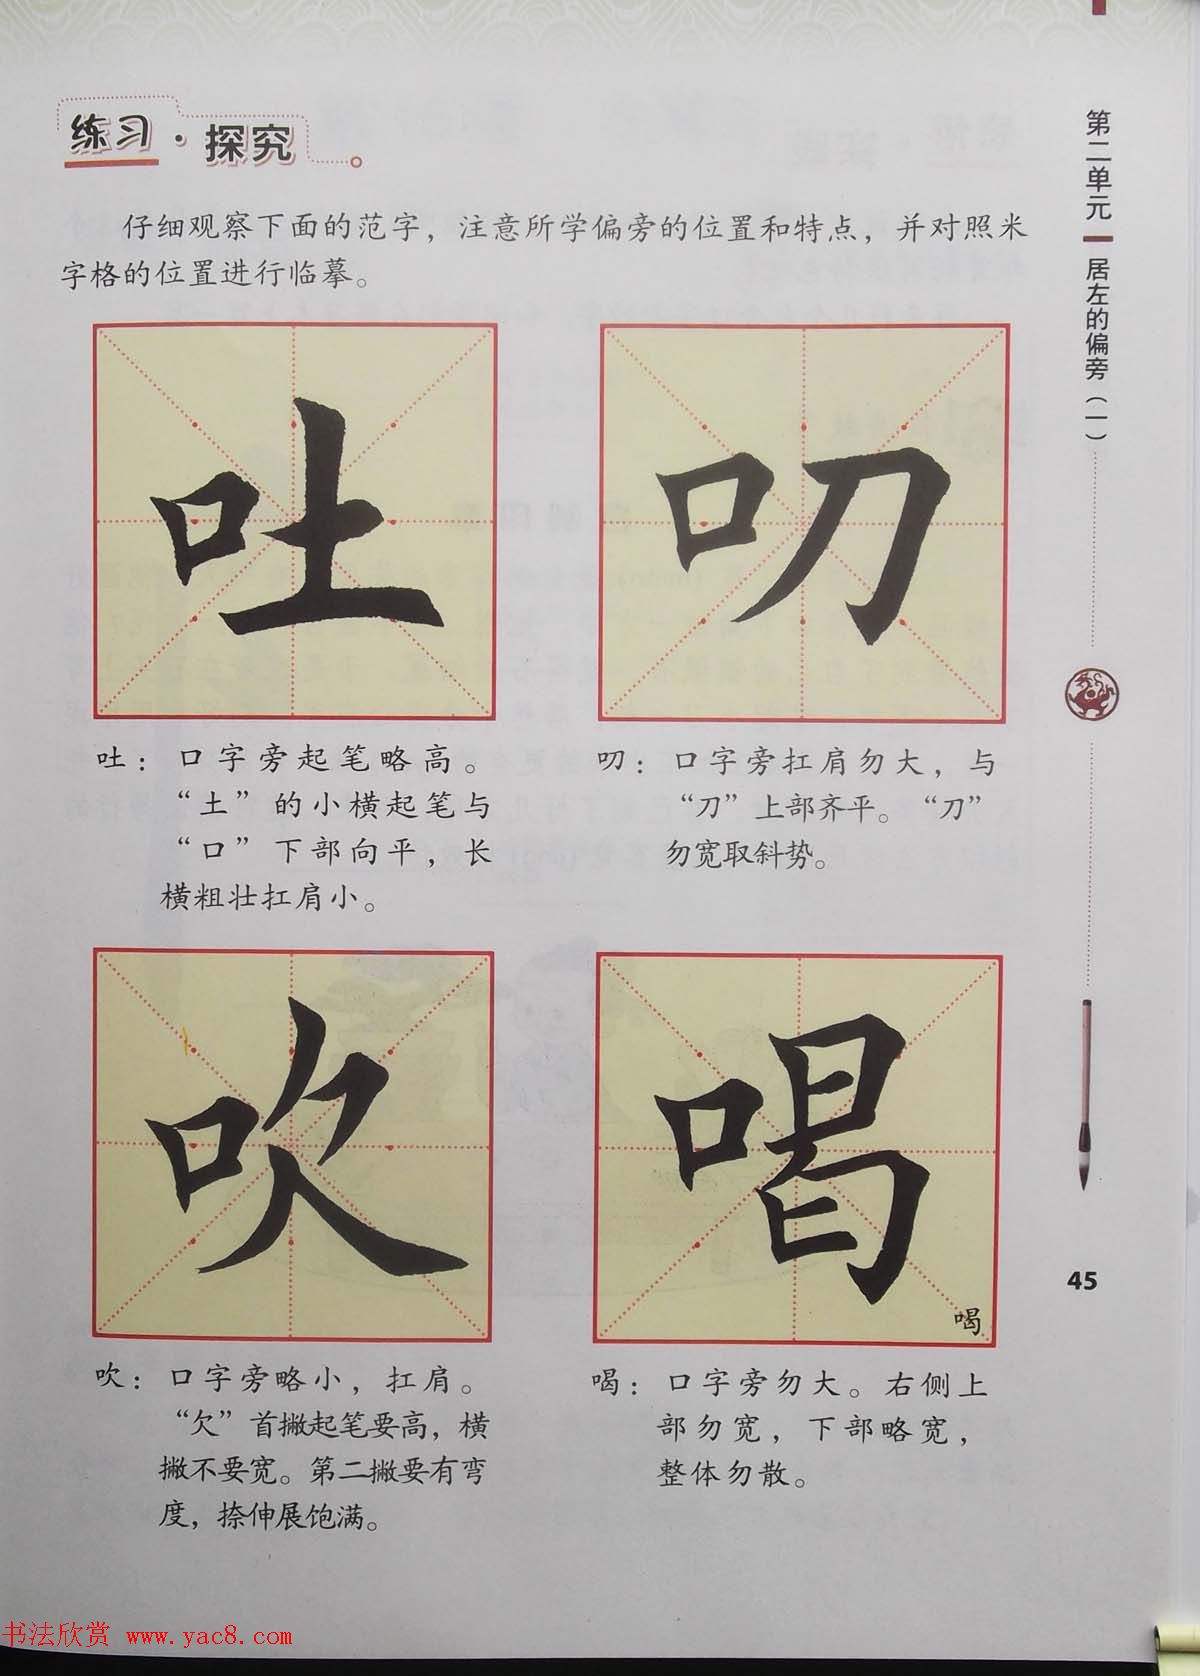 练习·探究
仔细观察下面的范字，注意所学偏旁的位置和特点，并对照米
字格的位置进行临摹。
吐
叨
吐：口字旁起笔略高。
“土”的小横起笔与
“口”下部向平，长
横粗壮扛肩小。
叨：口字旁扛肩勿大，与
“刀”上部齐平。“刀”
勿宽取斜势。
吹
喝
喝
吹：口字旁略小，扛肩。
“欠”首撇起笔要高，横
撇不要宽。第二撇要有弯
度，捺伸展饱满。
喝：口字旁勿大。右侧上
部勿宽，下部略宽，
整体勿散。
第二单元
居左的偏旁（一）
45
书法欣赏 www.yac8.com